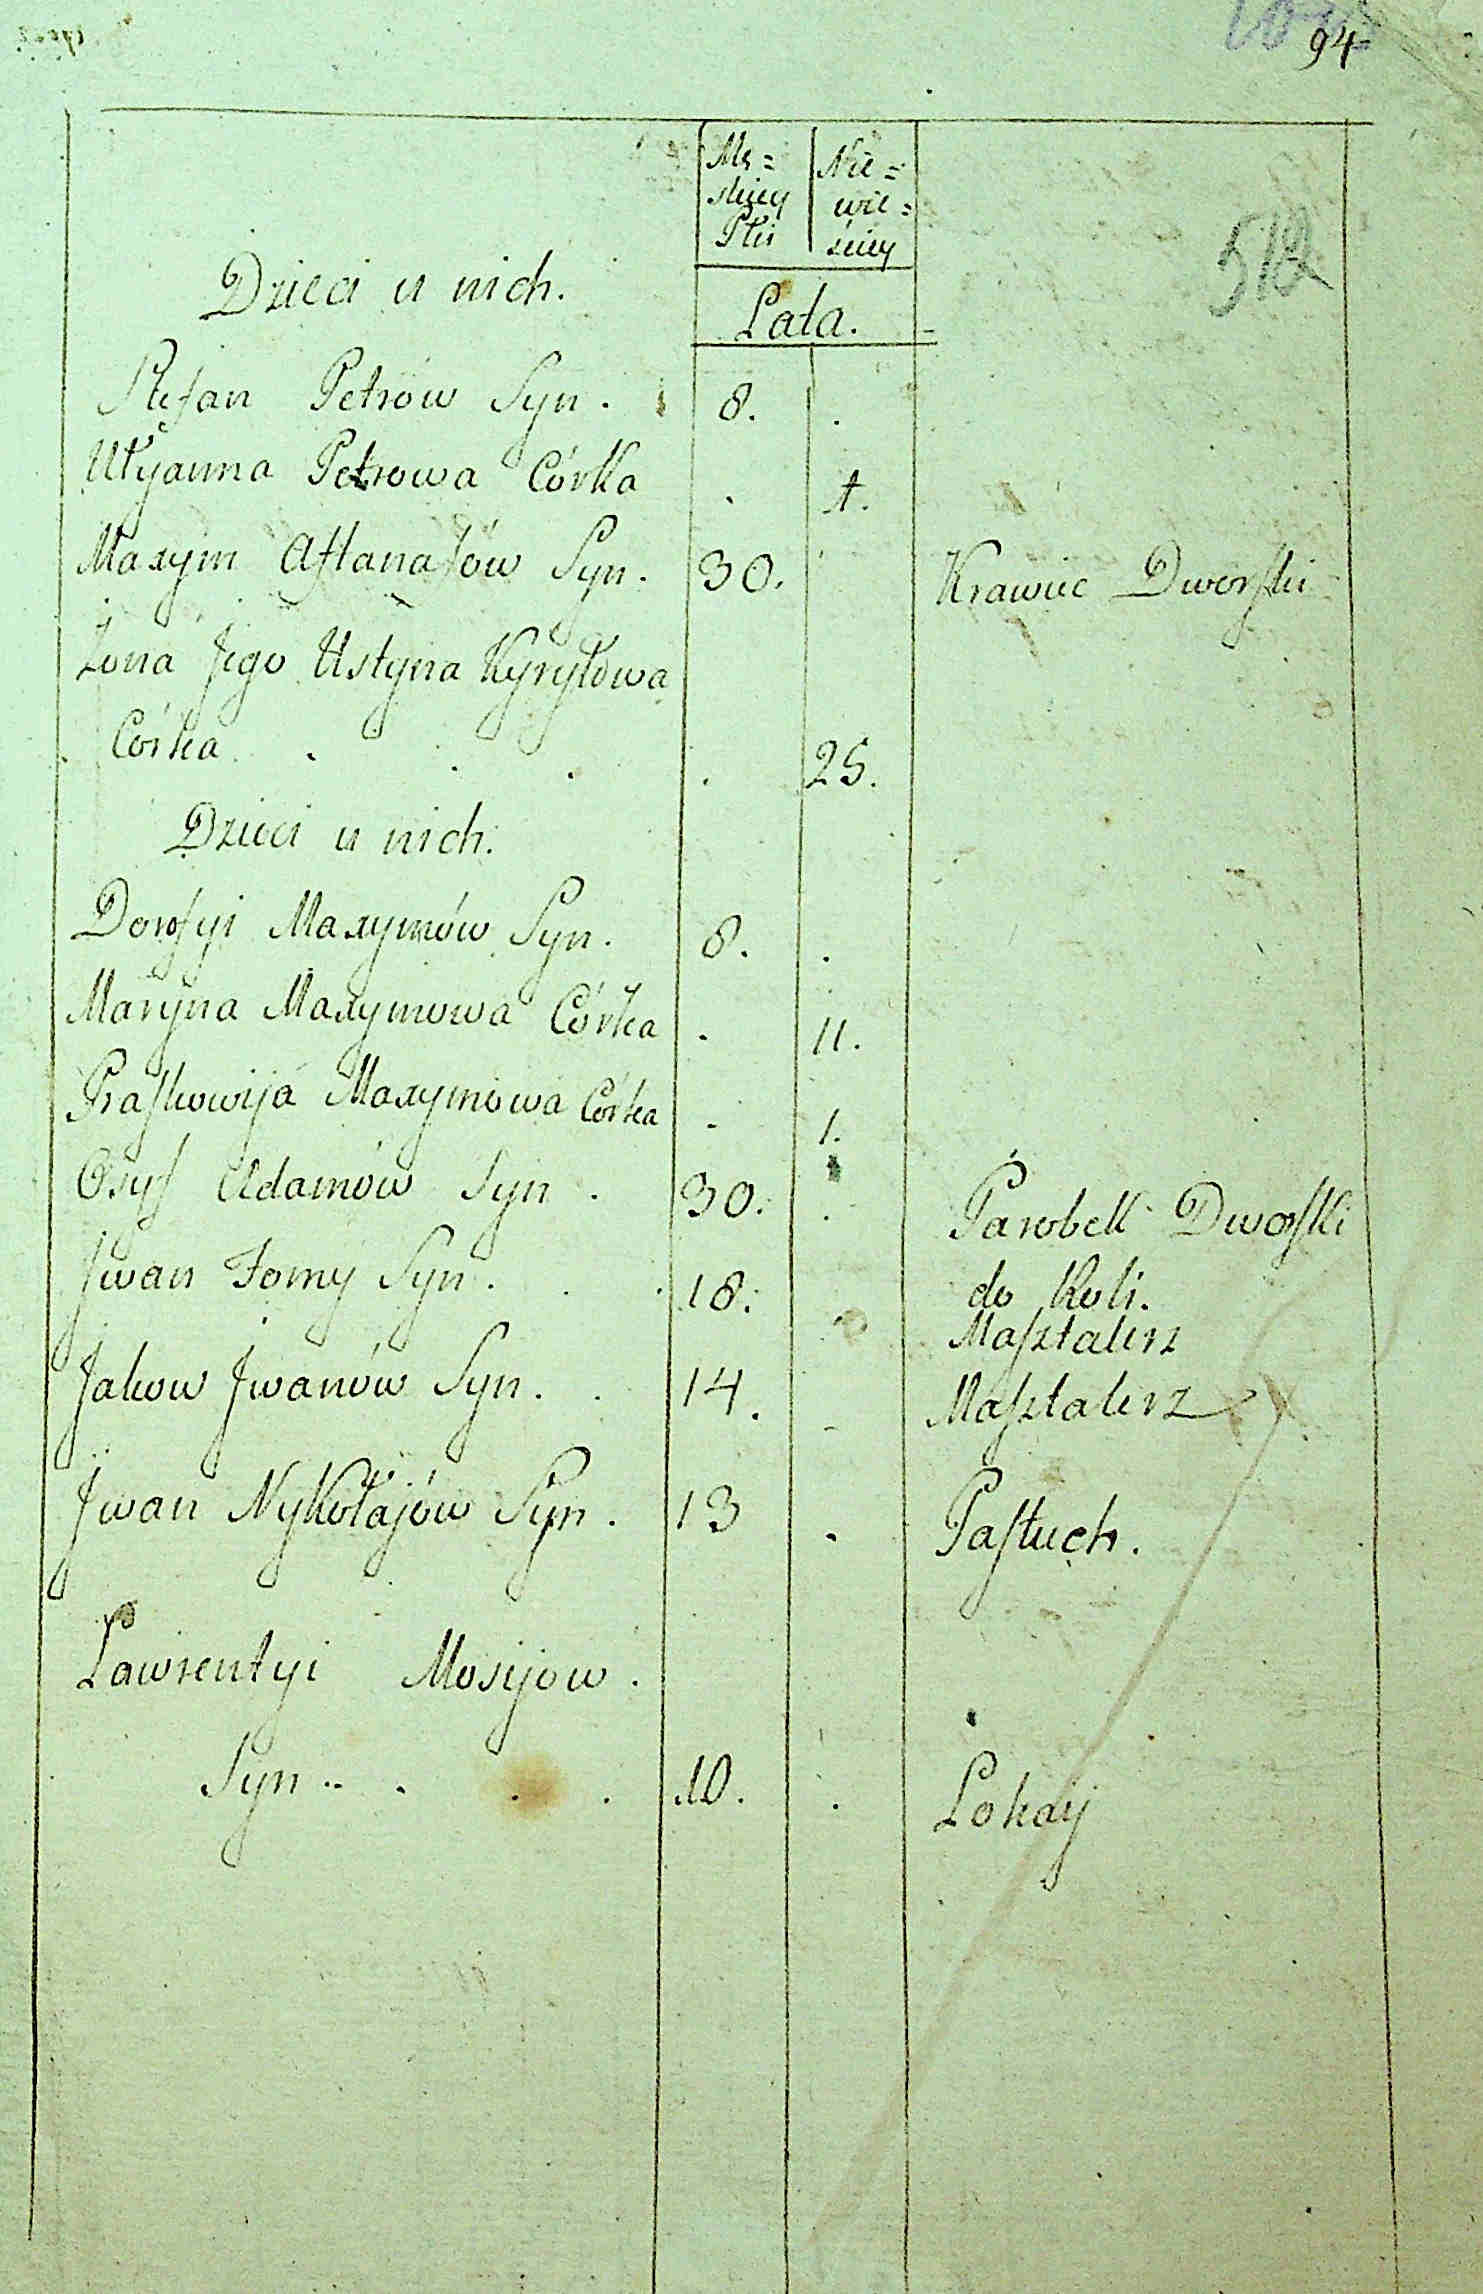 94
Mę=
skiey
Płci
Nie=
wie=
ściey
512
Dzieci u nich.
Lata.
Stefan Petrów Syn. 8. .
Ułyanna Petrowa Córka . 1.
Maxym Aftanasów Syn. 30. Krawiec Dworski
Żona Jego Ustyna Kyryłowa
Córka . . . . 25.
Dzieci u nich.
Dorosyi Maxymów Syn. 8. .
Maryna Maxymowa Córka . 11.
Praskowija Maxymowa Córka . 1.
Osyf Adamów Syn . 30. . Parobek Dworski
do Koli.
Jwan Fomy Syn. . . 18. Masztalerz
Jakow Jwanów Syn. . 14. . Masztalerz
Jwan Nykołajów Syn. 13 . Pastuch.
Lawrentyi Mosijow.
Syn . . . . 10. . Lokay